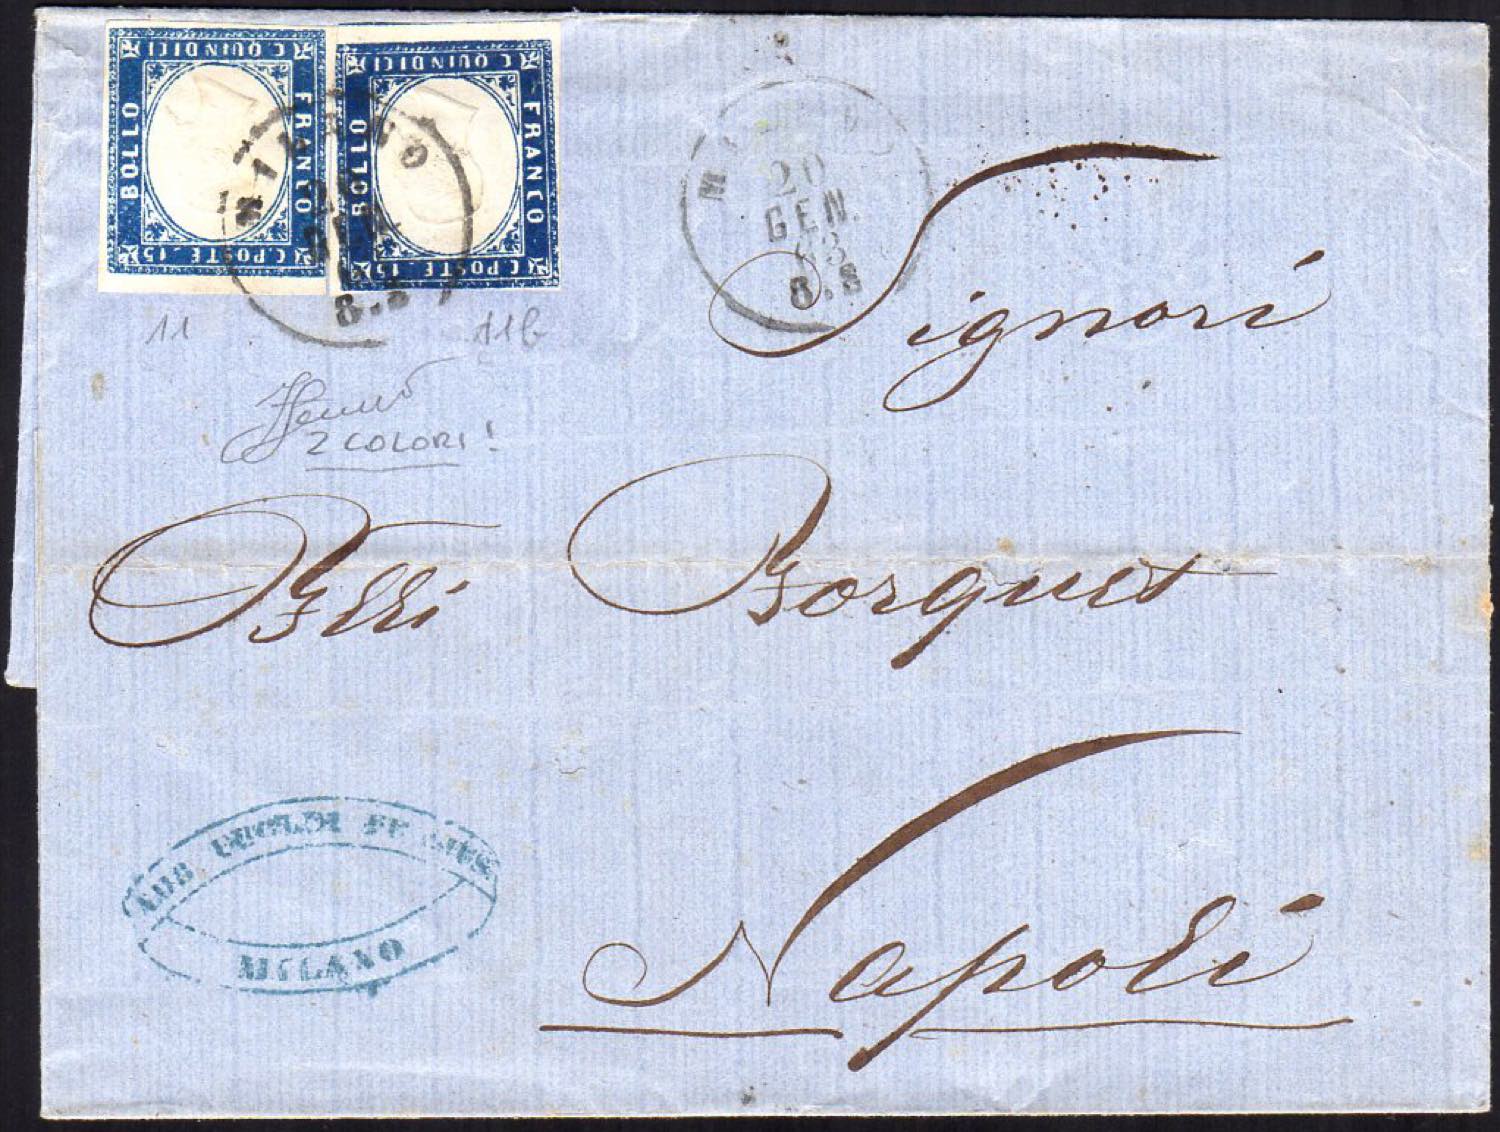 C. QUINDICI
BOLLO
FRANCO
C. POSTE 15
C. QUINDICI
BOLLO
FRANCO
C. POSTE 15
MILANO
GEN.
8.S
20
GEN.
63
8.S
11
11b
2 COLORI!
Signori
Flli Borguet
Napoli
MILANO